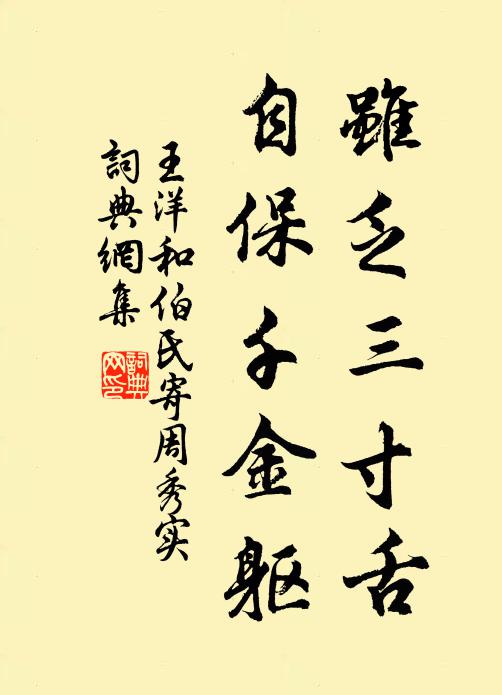 雖乏三寸舌
自保千金躯
王洋和伯氏寄周秀实
詞典網集
詞典网印